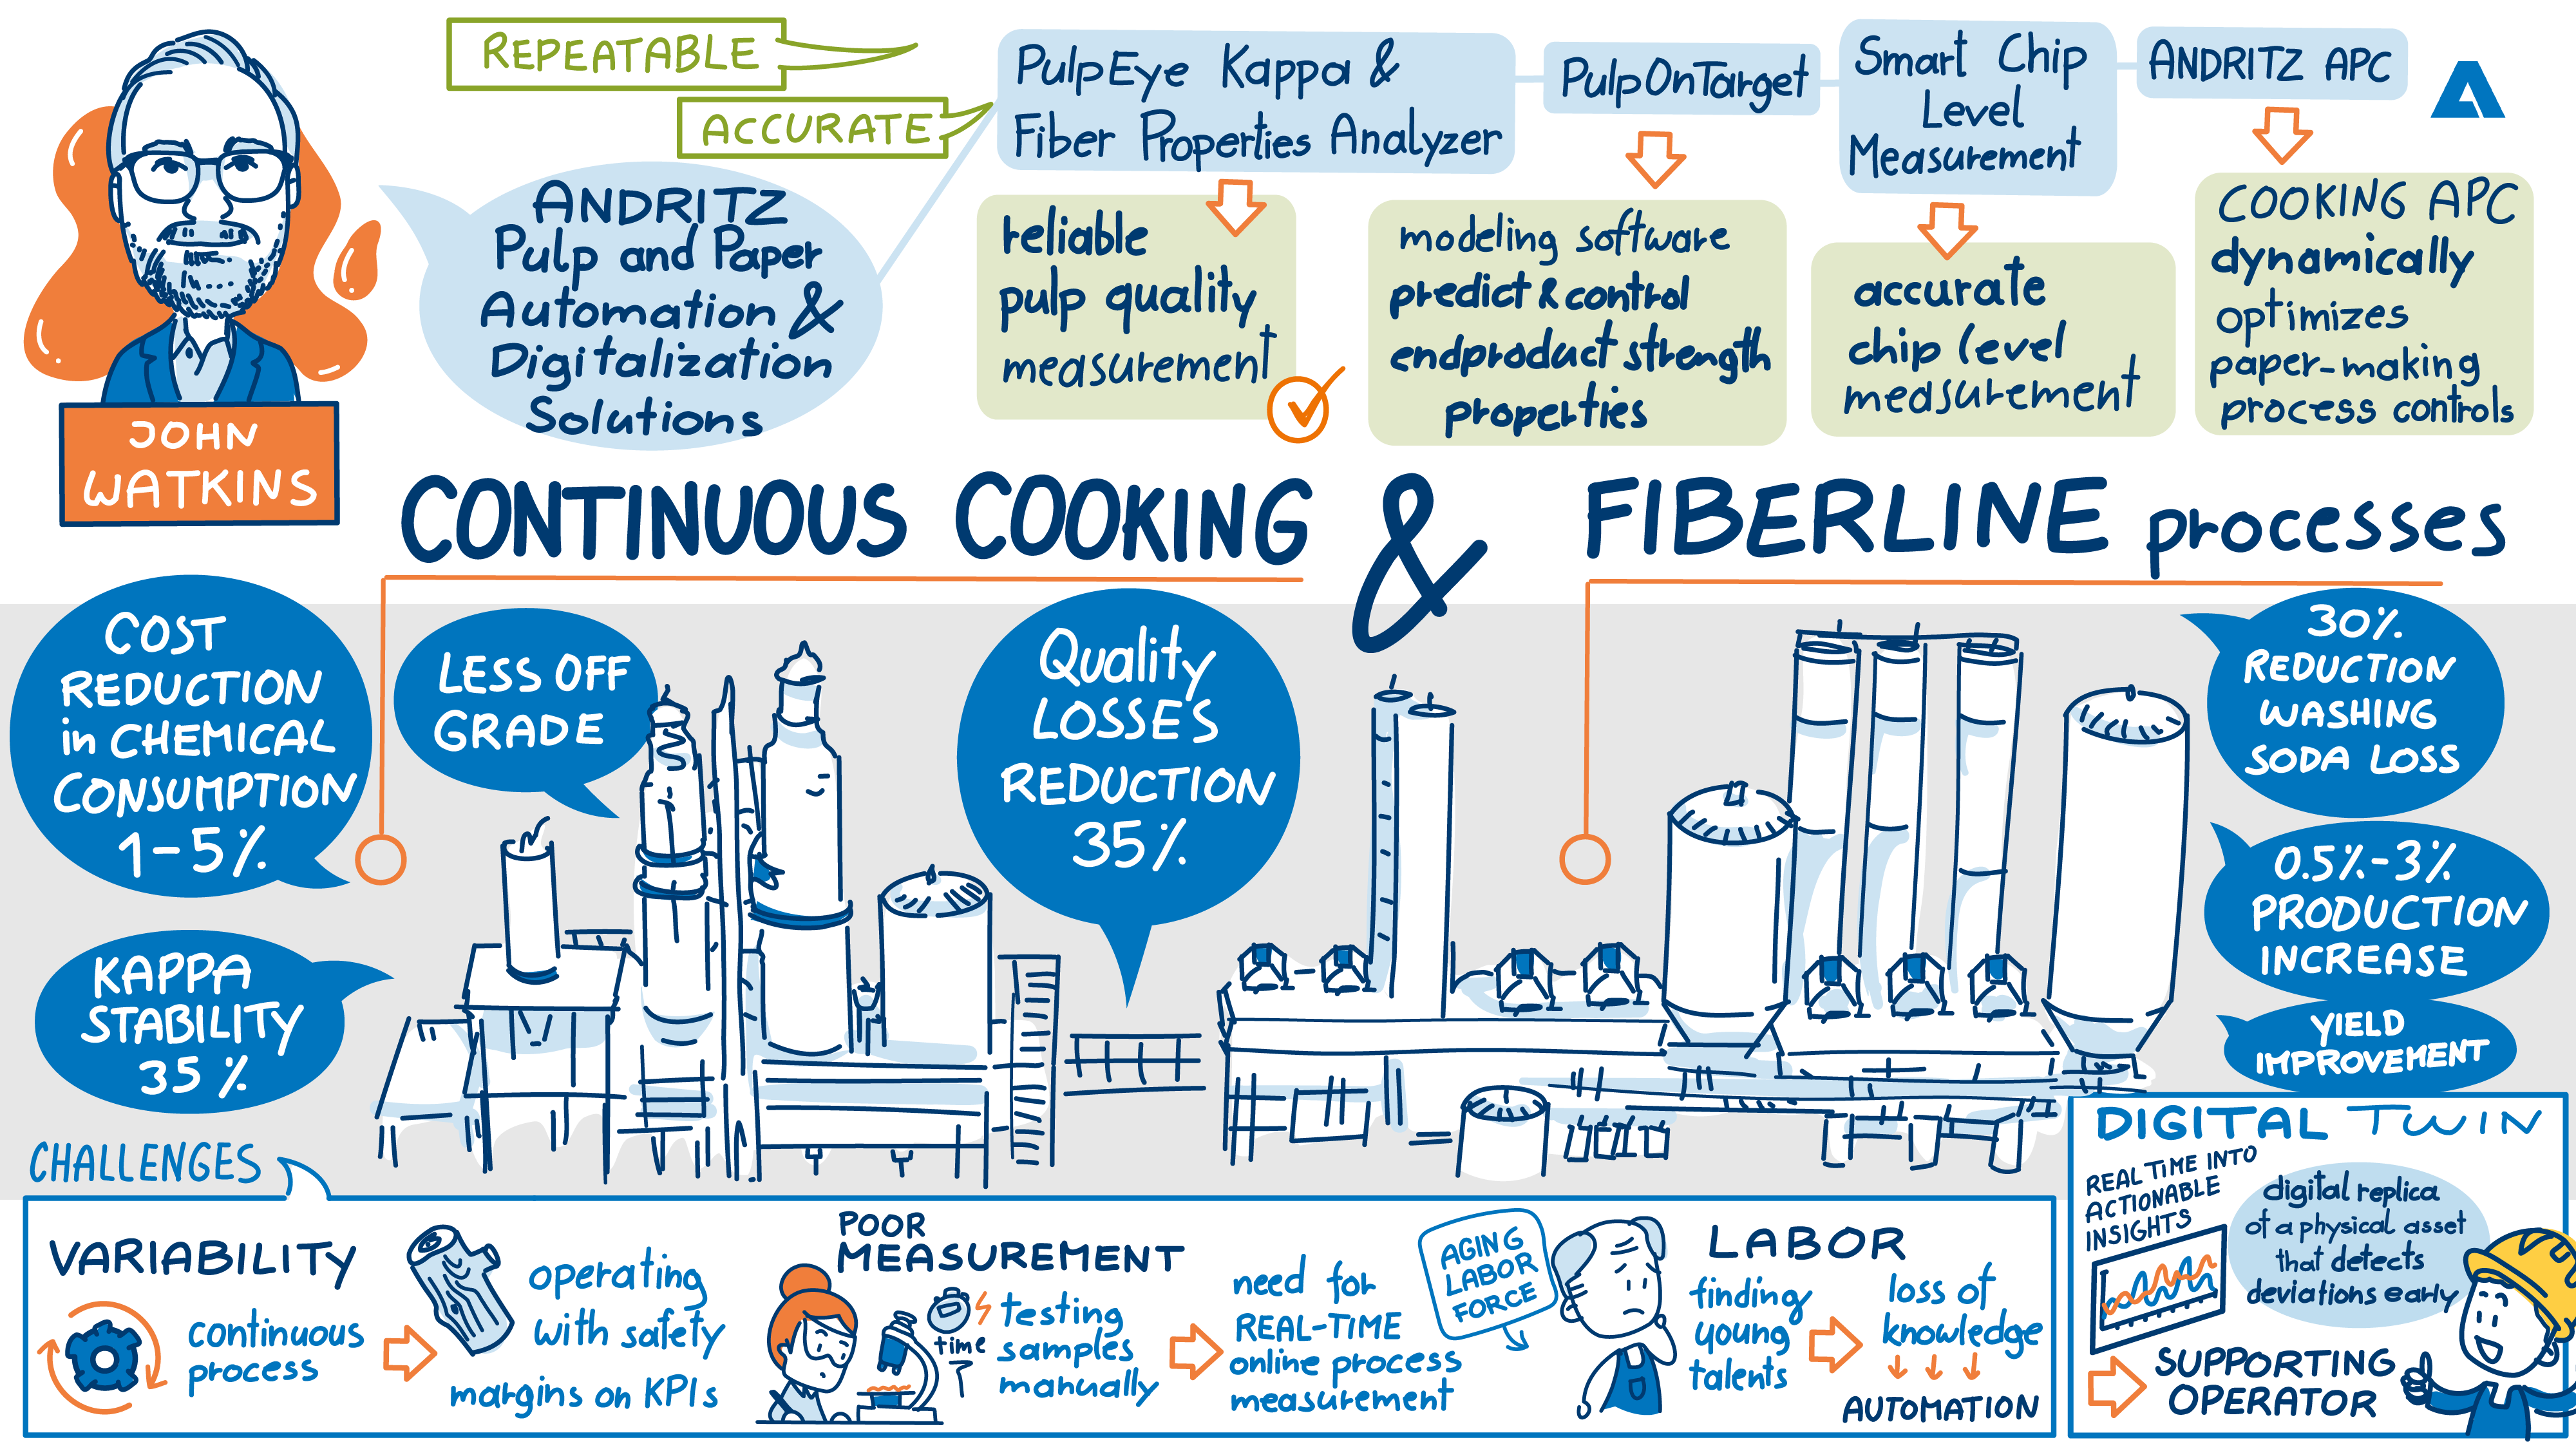 REPEATABLE
ACCURATE
JOHN
WATKINS
ANDRITZ
Pulp and Paper
Automation &
Digitalization
Solutions
PulpEye Kappa &
Fiber Properties Analyzer
reliable
pulp quality
measurement
PulpOnTarget
modeling software
predict & control
endproduct strength
properties
Smart Chip
Level
Measurement
accurate
chip level
measurement
ANDRITZ APC
COOKING APC
dynamically
optimizes
paper-making
process controls
CONTINUOUS COOKING & FIBERLINE processes
COST
REDUCTION
in CHEMICAL
CONSUMPTION
1-5%
LESS OFF
GRADE
KAPPA
STABILITY
35%
Quality
LOSSES
REDUCTION
35%
30%
REDUCTION
WASHING
SODA LOSS
0.5%-3%
PRODUCTION
INCREASE
YIELD
IMPROVEMENT
CHALLENGES
VARIABILITY
continuous
process
operating
with safety
margins on KPIs
POOR
MEASUREMENT
time
testing
samples
manually
need for
REAL-TIME
online process
measurement
AGING
LABOR
FORCE
LABOR
finding
young
talents
loss of
knowledge
AUTOMATION
DIGITAL TWIN
REAL TIME INTO
ACTIONABLE
INSIGHTS
digital replica
of a physical asset
that detects
deviations early
SUPPORTING
OPERATOR